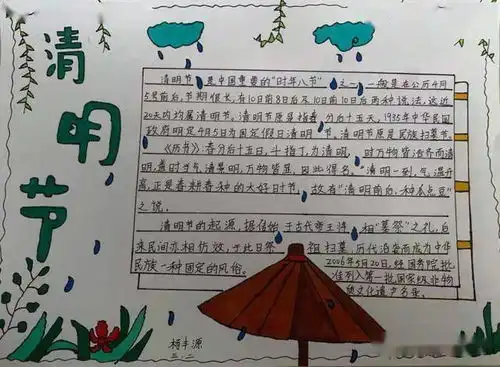 清明节
清明节是中国重要的“时年八节”之一,一般是在公历4月
5号前后,节期很长,有10日前8日后及10日前10日后两种说法,这近
20天内均属清明节,清明节原是指春分后十五天,1935年中华民
国政府明定4月5日为国定假日清明节,清明节原是民族扫墓节。
《历书》:春分后十五日,斗指丁,为清明,时万物皆洁齐而清
明,盖时当气清景明,万物皆显,因此得名。“清明一到,气温升
高,正是春耕春种的大好时节,故有“清明前后,种瓜点豆”
之说。
清明节的起源,据传始于古代帝王将相“墓祭”之礼,后
来民间亦相仿效,于此日祭祖扫墓,历代沿袭而成为中华
民族一种固定的风俗。
2006年5月20日,经国务院批
准列入第一批国家级非物
质文化遗产名录。
杨丰源
三、二